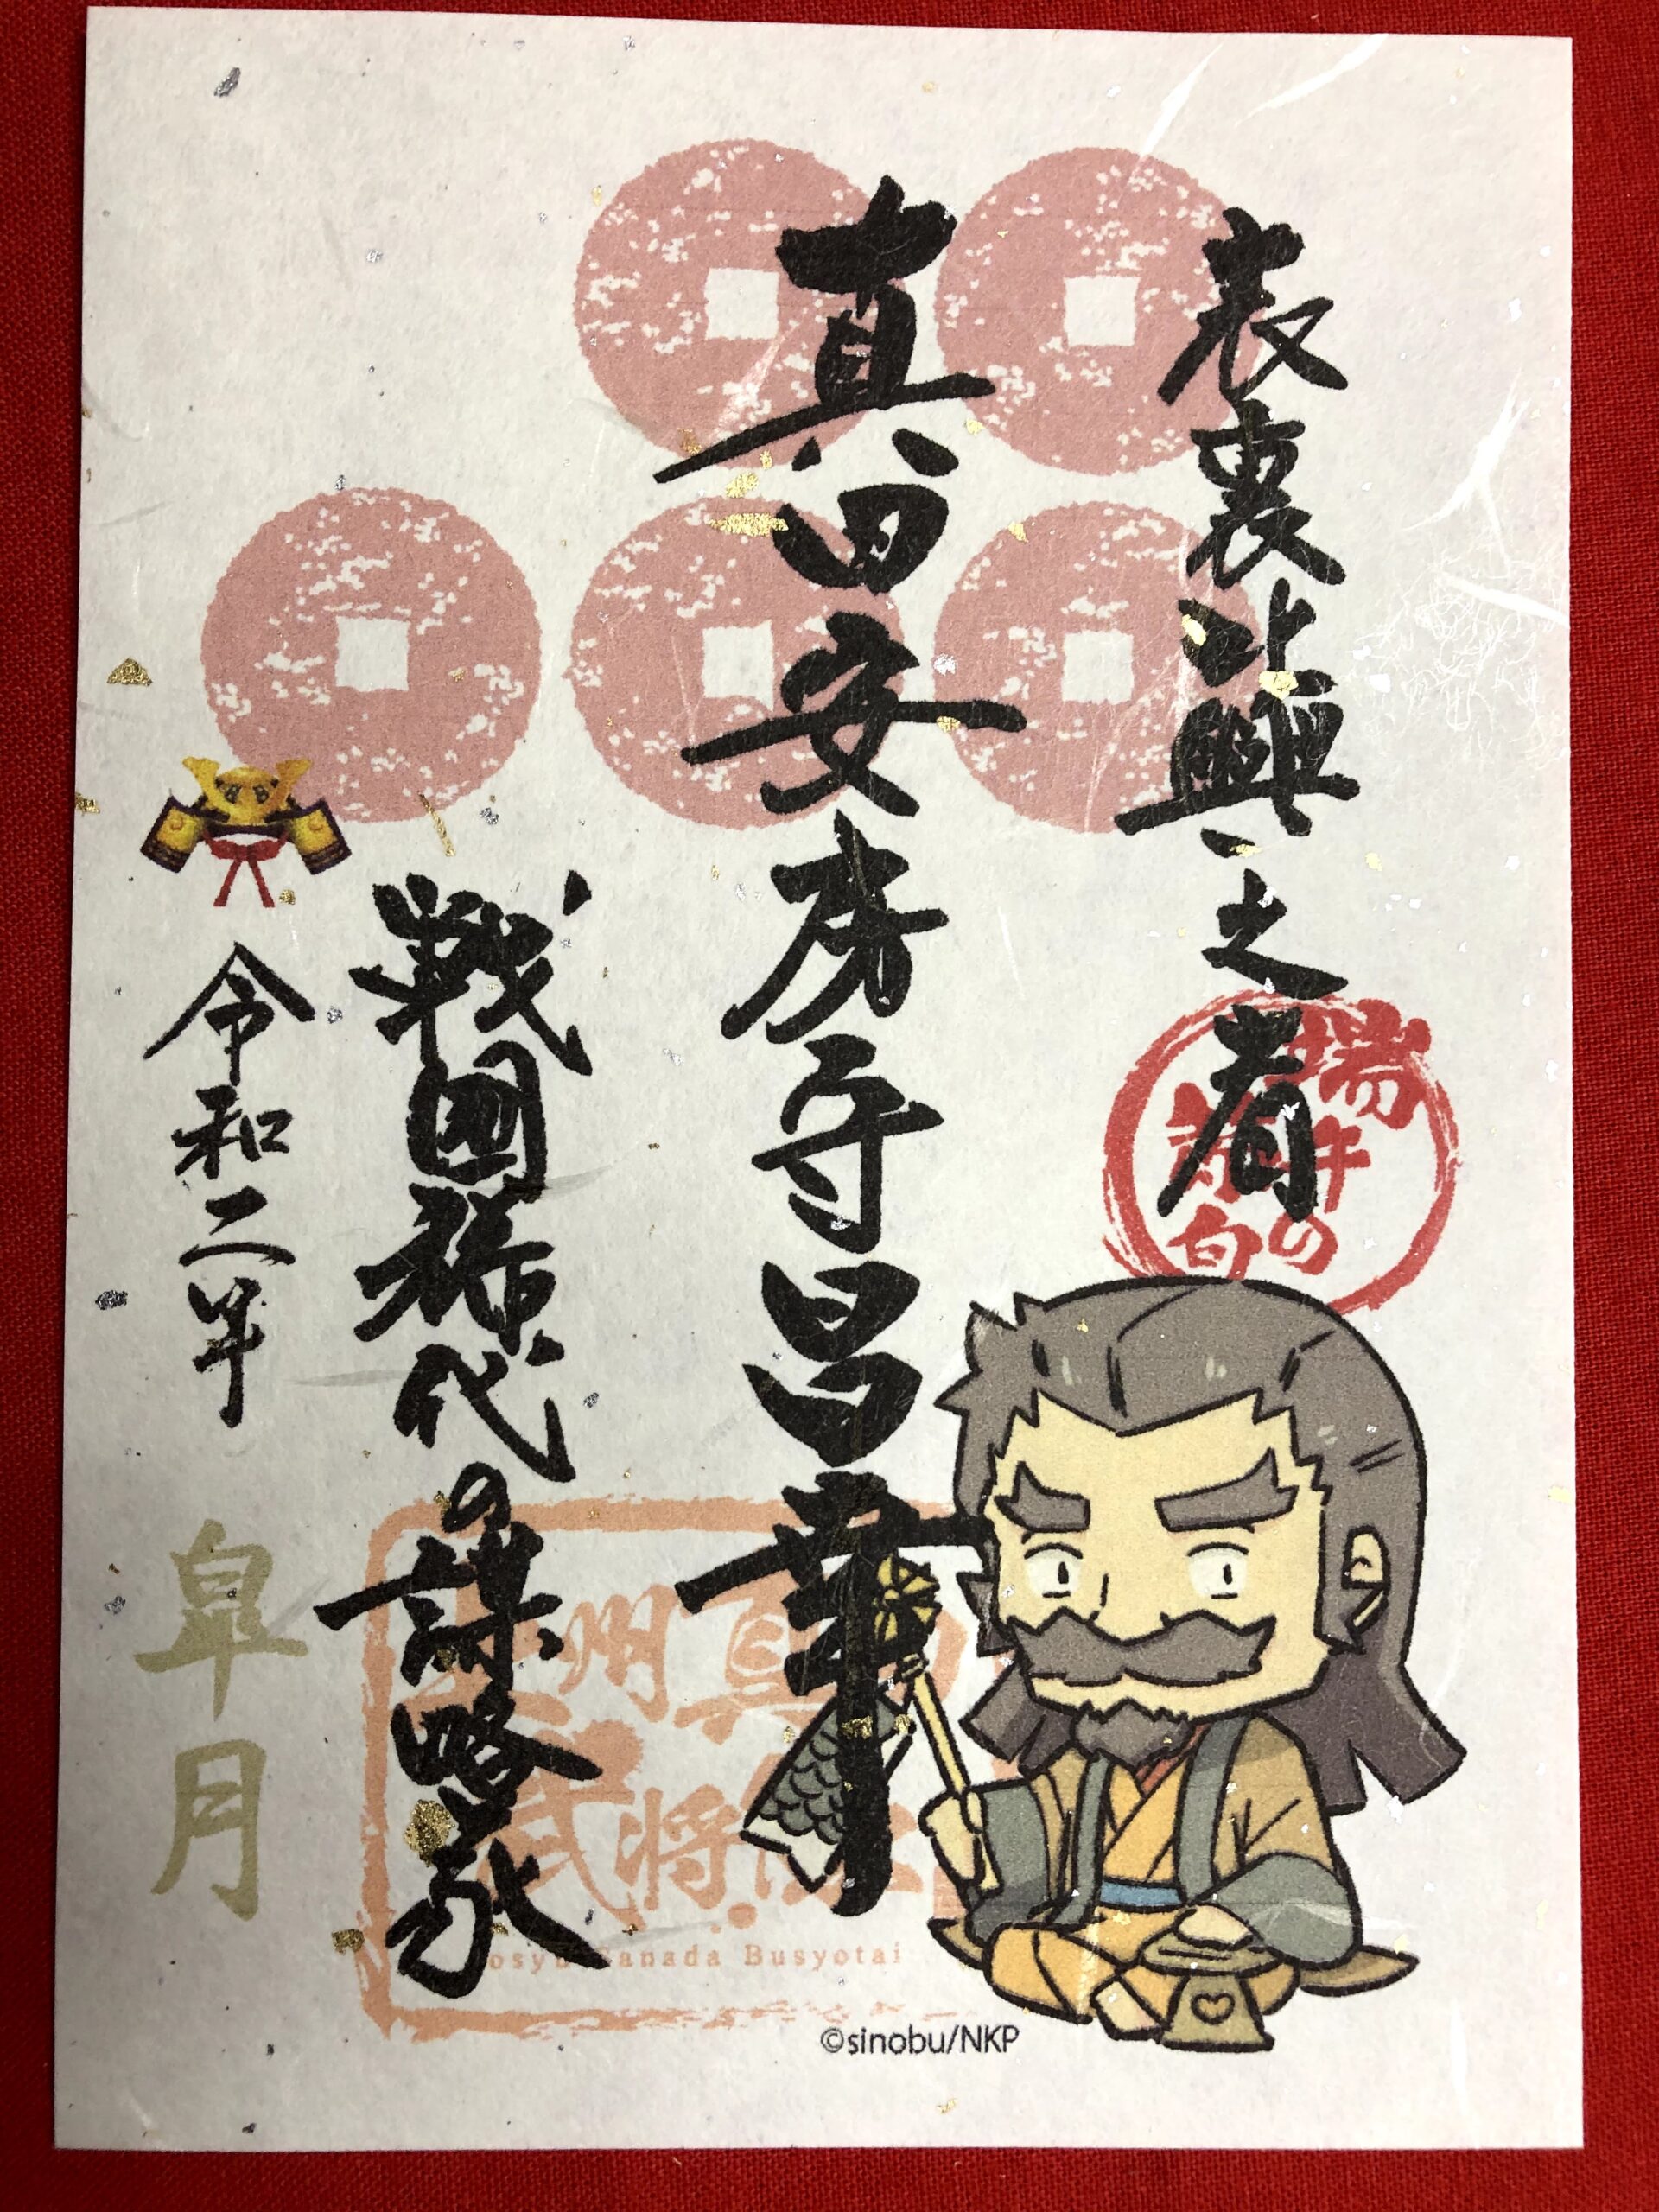 表裏比興之者
端午の
節句
真田安房守昌幸
戦国稀代の謀略家
令和二年
皐月
州真
武将
Sanada Busyotai
©sinobu/NKP